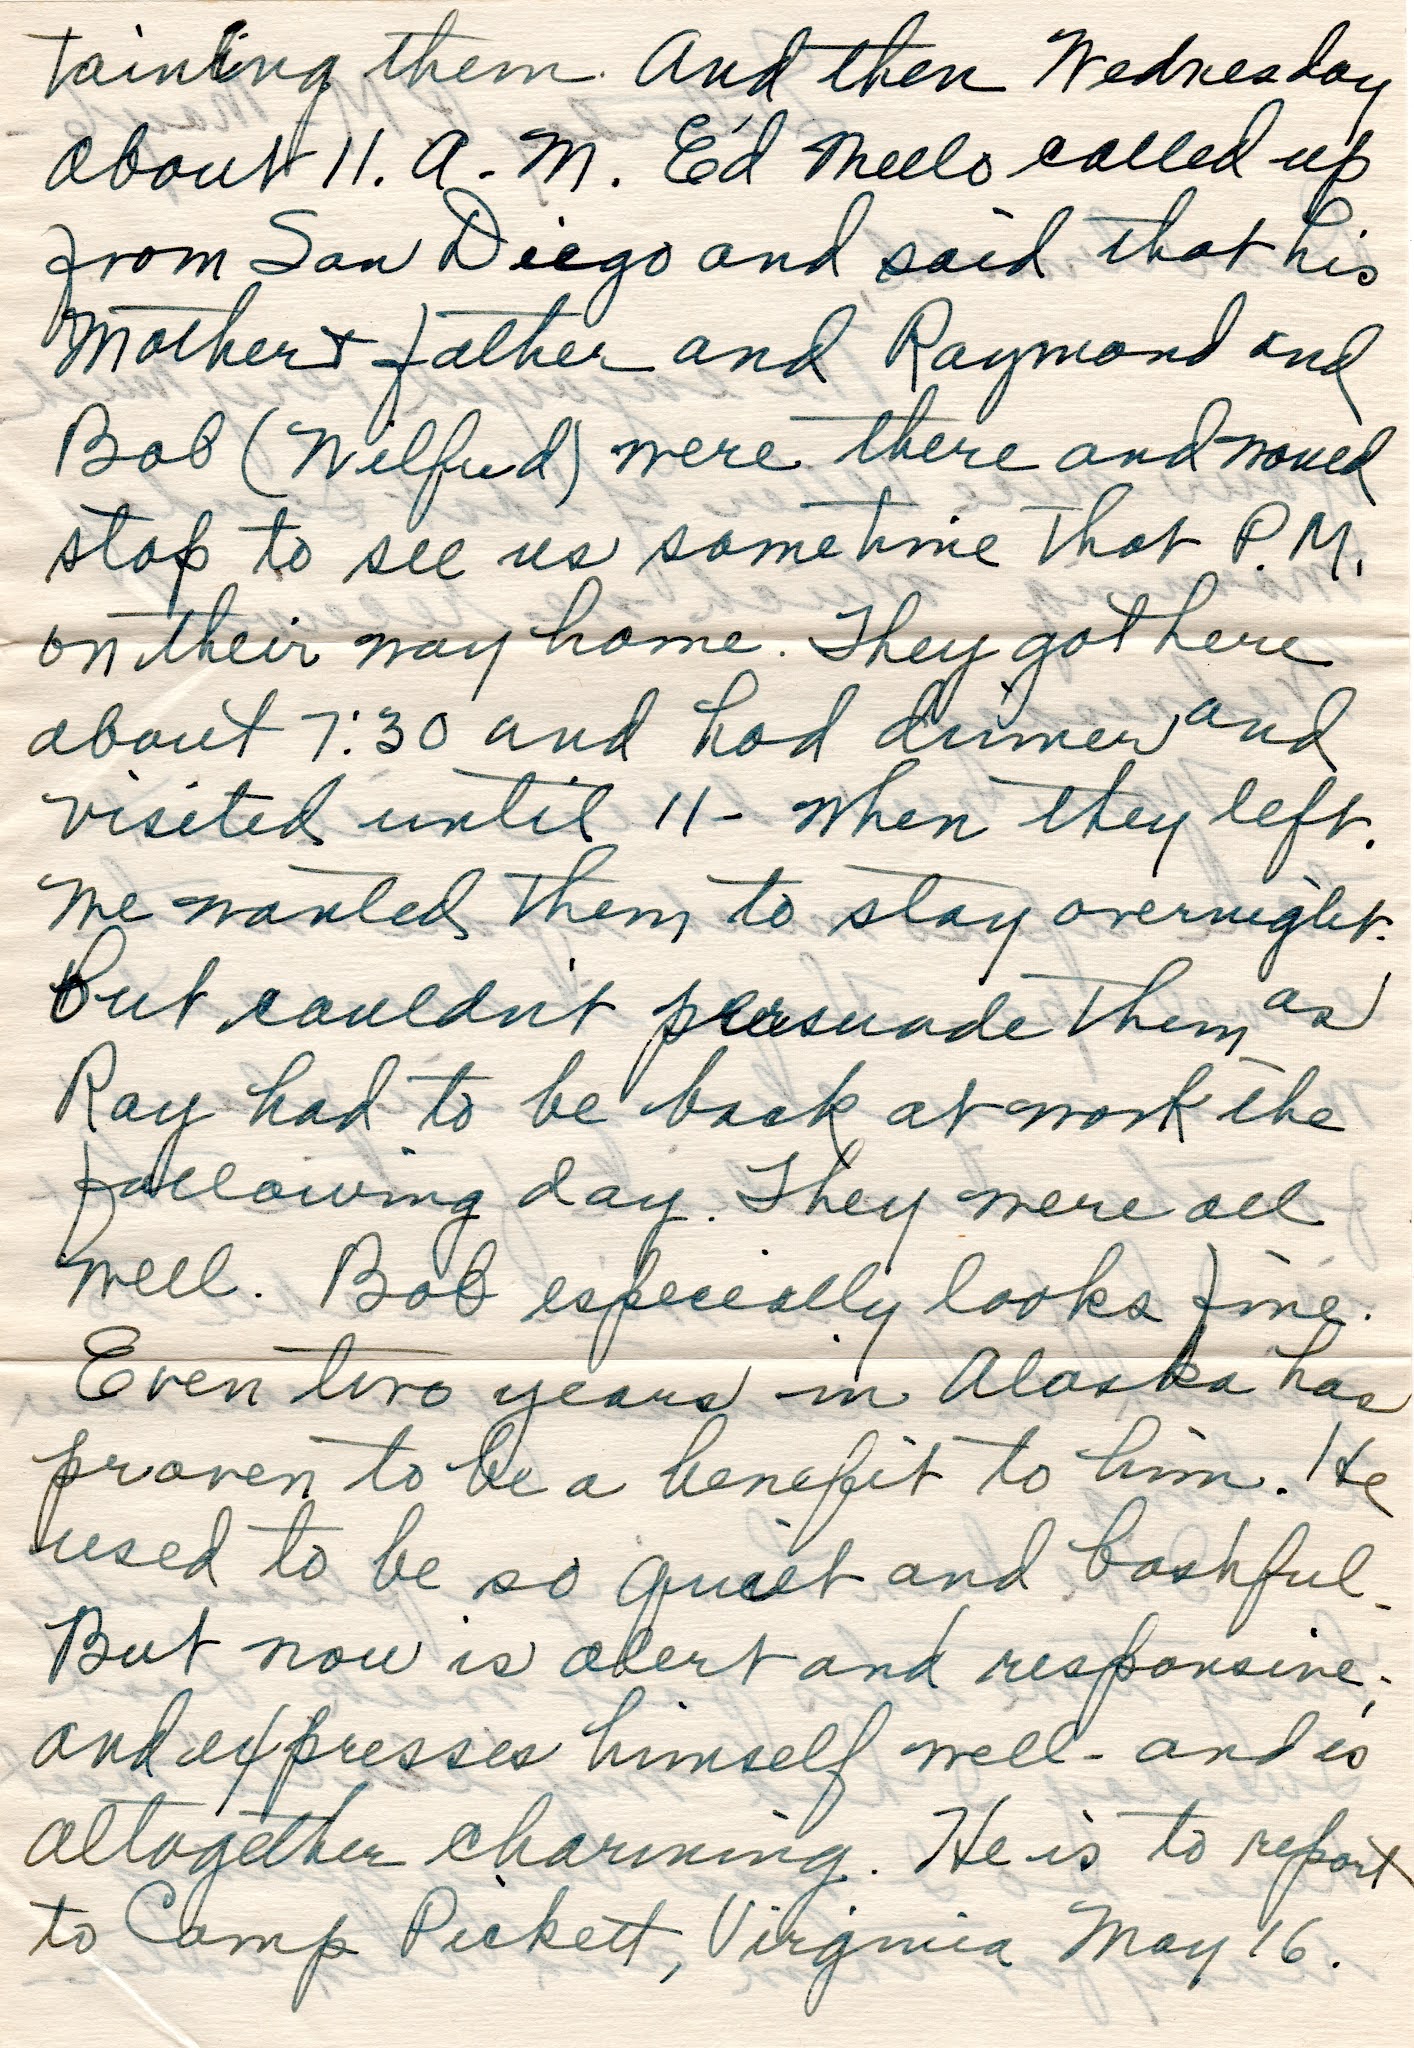 taining them. And then Wednesday
about 11. A. M. Ed called up
from San Diego and said that his
Mother & father and Raymond and
Bob (Wilfred) were there and would
stop to see us sometime that P.M.
on their way home. They got here
about 7:30 and had dinner and
visited until 11 - when they left.
We wanted them to stay overnight.
But couldn't persuade them as
Ray had to be back at work the
following day. They were all
well. Bob especially looks fine.
Even two years in Alaska has
proven to be a benefit to him. He
used to be so quiet and bashful -
But now is alert and responsive,
and expresses himself well - and is
altogether charming. He is to report
to Camp Pickett, Virginia May 16.